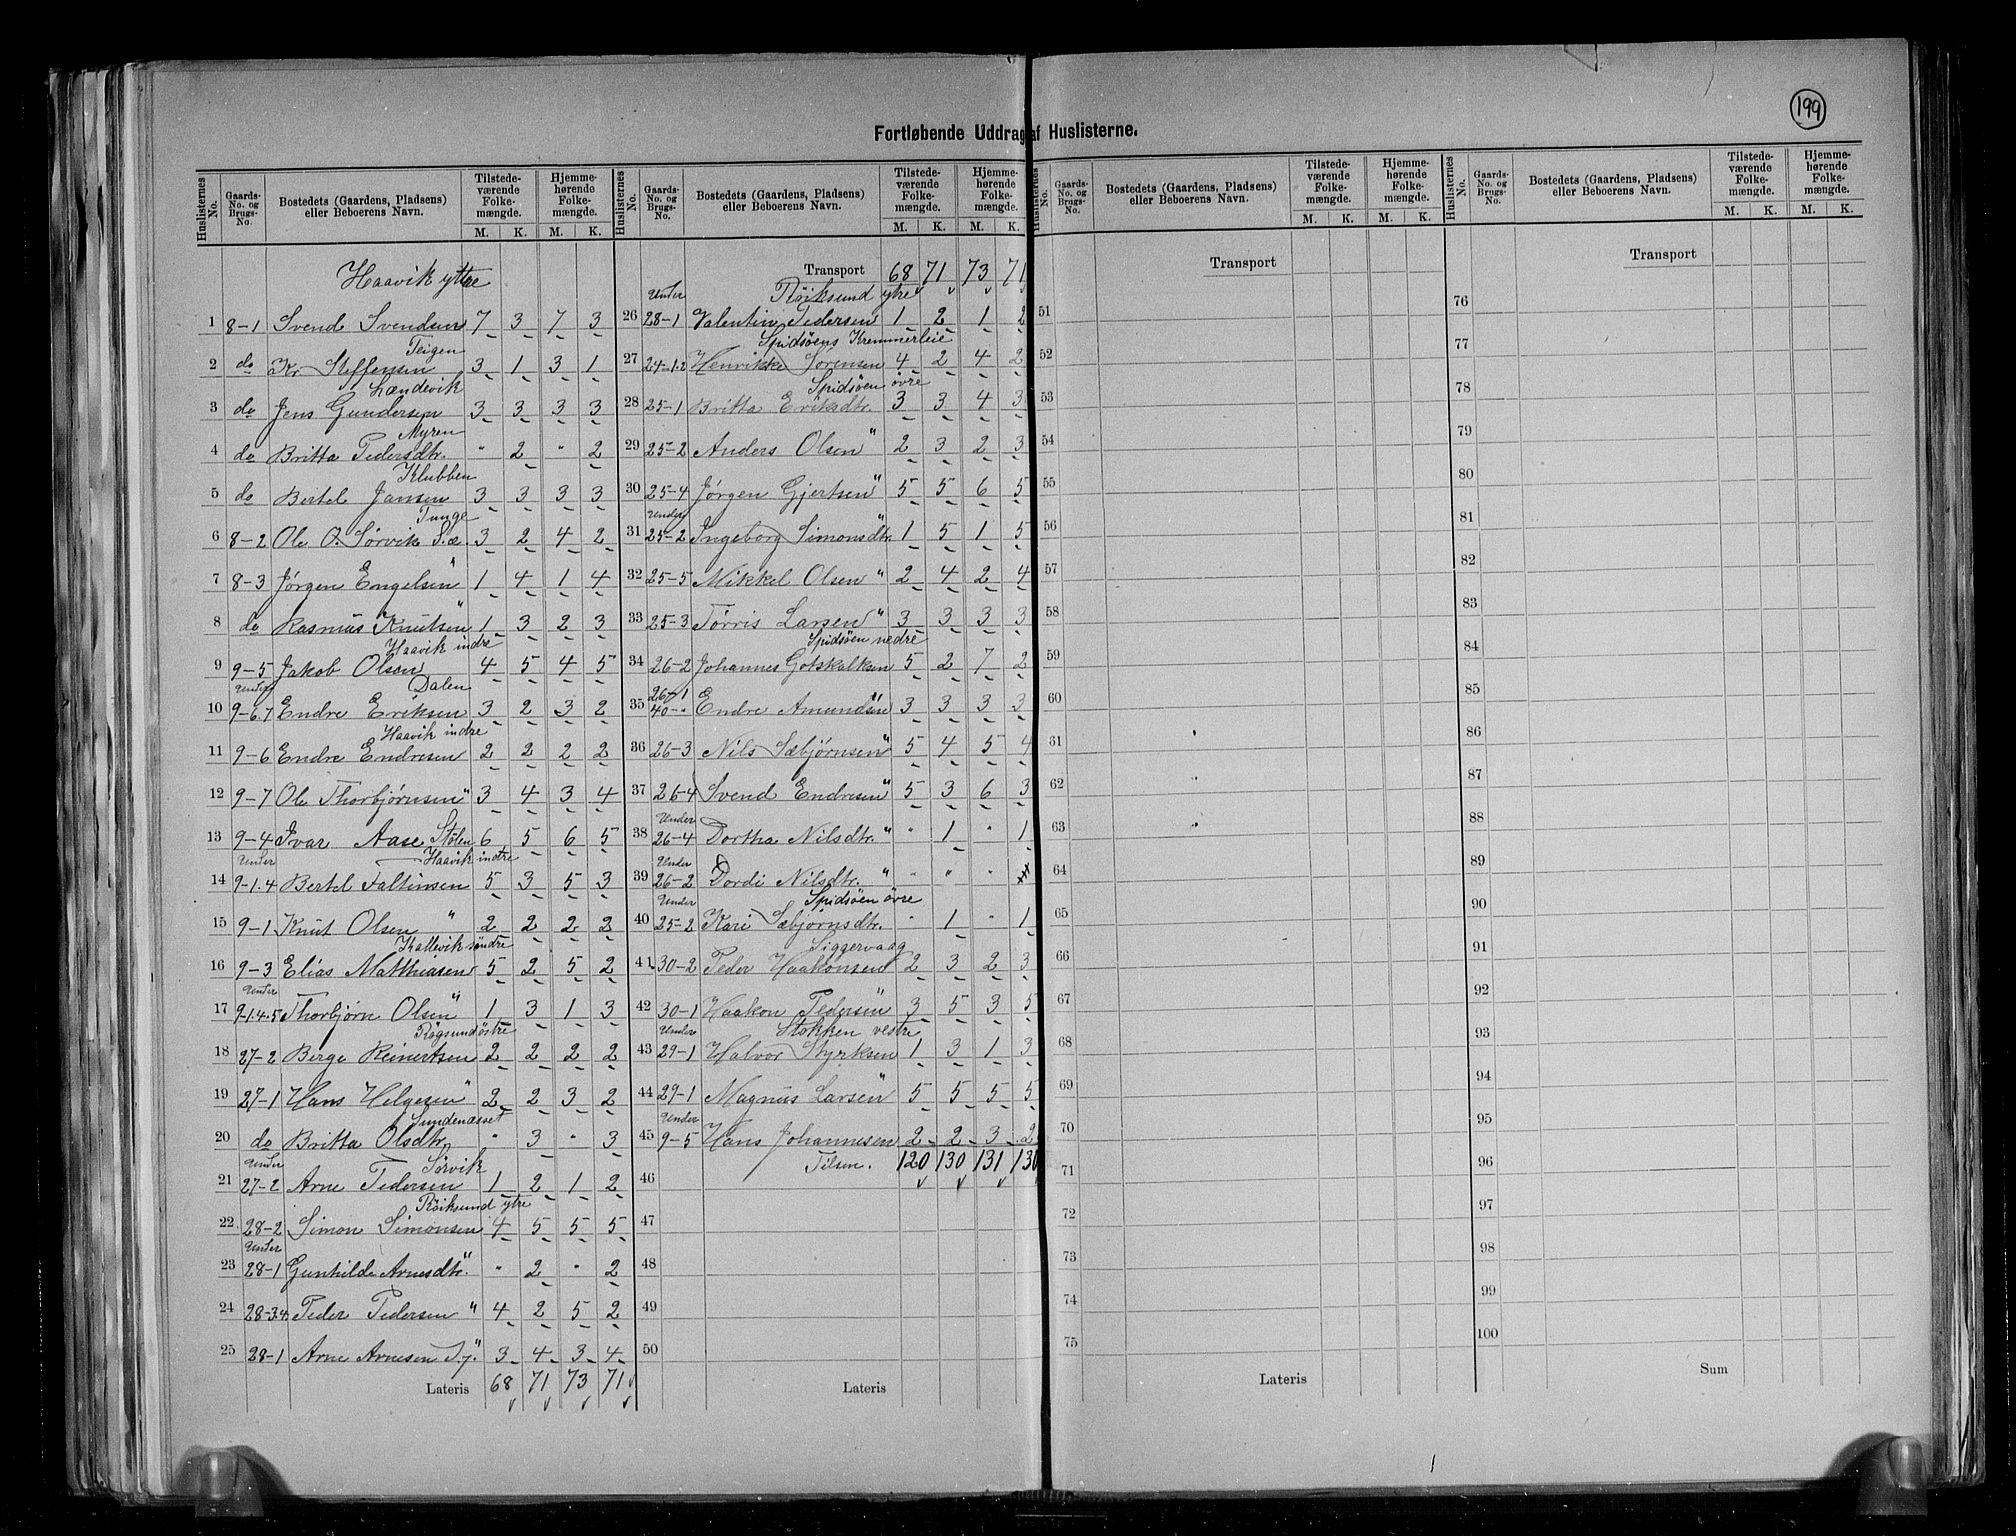 199
Fortløbende Uddrag af Huslisterne.
Huslisternes No. | Gaards-No. og Brugs-No. | Bostedets (Gaardens, Pladsens) eller Beboerens Navn. | Tilstede-værende Folke-mængde. M. K. | Hjemme-hørende Folke-mængde. M. K.
Haavik ytre
1 8-1 Svend Svendsen 7 3 7 3
Teigen
2 do Kr Steffensen 3 1 3 1
Lændevik
3 do Jens Gundersen 3 3 3 3
Myren
4 do Britta Pedersdtr. " 2 " 2
Klubben
5 do Bertel Jansen 3 3 3 3
Tunge
6 8-2 Ole O. Sørvik S.æ. 3 2 4 2
7 8-3 Jørgen Engelsen " 1 4 1 4
8 do Rasmus Knutsen " 1 3 2 3
Haavik indre
9 9-5 Jakob Olsen 4 5 4 5
Under Dalen
10 9-6.7 Endre Eriksen 3 2 3 2
Haavik indre
11 9-6 Endre Endresen 2 2 2 2
12 9-7 Ole Thorbjørnsen " 3 4 3 4
13 9-4 Ivar Aase Stølen 6 5 6 5
Under Haavik indre
14 9-1.4 Bertel Faltinsen 5 3 5 3
15 9-1 Knut Olsen " 2 2 2 2
Kallevik søndre
16 9-3 Elias Matthiasen 5 2 5 2
Under
17 9-1.4.5 Thorbjørn Olsen " 1 3 1 3
Røgsund østre
18 27-2 Berge Reinertsen 2 2 2 2
19 27-1 Hans Helgesen " 2 2 3 2
Sundenæsset
20 do Britta Olsdtr. " 3 " 3
Under Sørvik
21 27-2 Arne Pedersen 1 2 1 2
Røiksund ytre
22 28-2 Simon Simonsen 4 5 5 5
Under
23 28-1 Gunhilde Arnesdtr. " " 2 " 2
24 28-3.4. Peder Pedersen " 4 2 5 2
25 28-1 Arne Arnesen S.y. " 3 4 3 4
Lateris 68 71 73 71
Huslisternes No. | Gaards-No. og Brugs-No. | Bostedets (Gaardens, Pladsens) eller Beboerens Navn. | Tilstede-værende Folke-mængde. M. K. | Hjemme-hørende Folke-mængde. M. K.
Transport 68 71 73 71
Under Røiksund ytre
26 28-1 Valentin Pedersen 1 2 1 2
Spidsøens Kremmerleie
27 24-1.2 Henrikke Sørensen 4 2 4 2
Spidsøen øvre
28 25-1 Britta Eriksdtr. 3 3 4 3
29 25-2 Anders Olsen " 2 3 2 3
30 25-4 Jørgen Gjertsen " 5 5 6 5
Under
31 25-2 Ingeborg Simonsdtr. " 1 5 1 5
32 25-5 Mikkel Olsen " 2 4 2 4
33 25-3 Tørris Larsen " 3 3 3 3
Spidsøen nedre
34 26-2 Johannes Gotskalksen 5 2 7 2
26-1
35 40-" Endre Amundsen " 3 3 3 3
36 26-3 Nils Sæbjørnsen " 5 4 5 4
37 26-4 Svend Endresen " 5 3 6 3
Under
38 26-4 Dortha Nilsdtr. " " 1 " 1
Under
39 26-2 Dordi Nilsdtr. " " " "
Under Spidsøen øvre
40 25-2 Kari Sæbjørnsdtr. " 1 " 1
Siggervaag
41 30-2 Peder Haakonsen 2 3 2 3
42 30-1 Haakon Pedersen " 3 5 3 5
Under Stokken vestre
43 29-1 Halvor Styrksen 1 3 1 3
44 29-1 Magnus Larsen " 5 5 5 5
Under
45 9-5 Hans Johannesen 2 2 3 2
46 Tilsm. 120 130 131 130
47
48
49
50
Lateris
Huslisternes No. | Gaards-No. og Brugs-No. | Bostedets (Gaardens, Pladsens) eller Beboerens Navn. | Tilstede-værende Folke-mængde. M. K. | Hjemme-hørende Folke-mængde. M. K.
Transport
51
52
53
54
55
56
57
58
59
60
61
62
63
64
65
66
67
68
69
70
71
72
73
74
75
Lateris
Huslisternes No. | Gaards-No. og Brugs-No. | Bostedets (Gaardens, Pladsens) eller Beboerens Navn. | Tilstede-værende Folke-mængde. M. K. | Hjemme-hørende Folke-mængde. M. K.
Transport
76
77
78
79
80
81
82
83
84
85
86
87
88
89
90
91
92
93
94
95
96
97
98
99
100
Sum